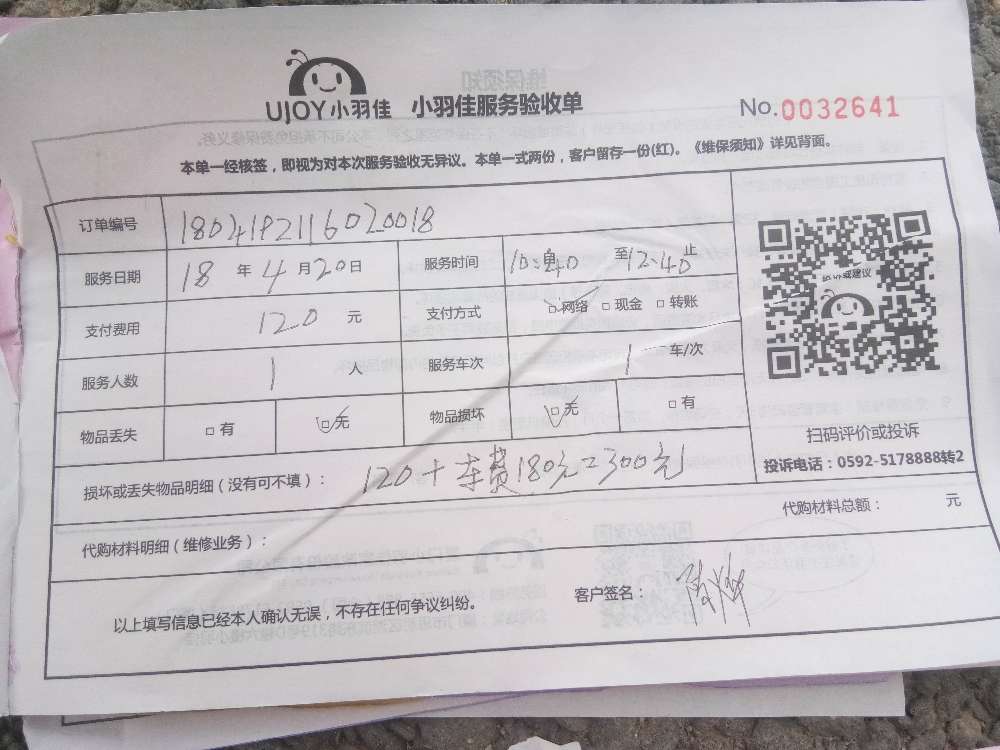 UJOY小羽佳 小羽佳服务验收单 No.0032641
本单一经核签，即视为对本次服务验收无异议。本单一式两份，客户留存一份(红)。《维保须知》详见背面。
订单编号 1804192116020018
服务日期 18 年 4 月 20 日 服务时间 10:40 至 12:40 止
支付费用 120 元 支付方式 网络 现金 转账
服务人数 1 人 服务车次 1 车/次
物品丢失 有 无 物品损坏 无 有
扫码评价或投诉
投诉电话：0592-5178888转2
损坏或丢失物品明细（没有可不填）： 120+车费180元=300元
代购材料明细（维修业务）： 代购材料总额： 元
以上填写信息已经本人确认无误，不存在任何争议纠纷。 客户签名：